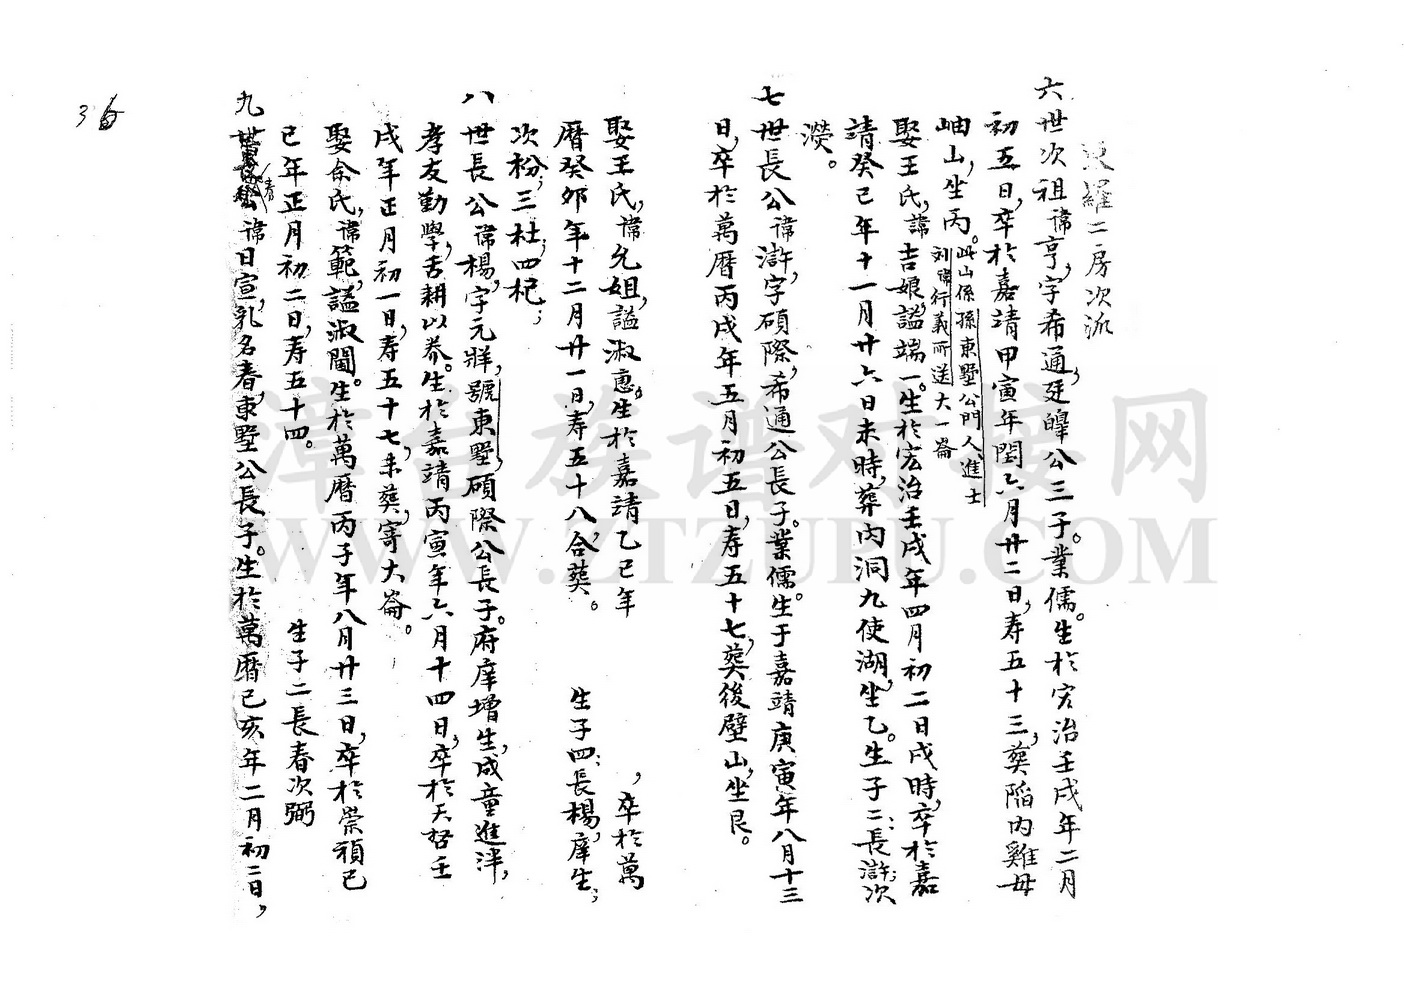 羅二房次派
六世次祖諱亨，字希通，廷皞公三子。業儒。生於宏治壬戌年二月
初五日，卒於嘉靖甲寅年閏六月廿二日，寿五十三，葬陷內雞母
岫山，坐丙。此山係孫東墅公門人進士
刘諱行義所送大一崙
娶王氏，諱吉娘，謚端一。生於宏治壬戌年四月初二日戌時，卒於嘉
靖癸巳年十一月廿六日未時，葬內洞九使湖，坐乙。生子二：長滸；次
濙。
七世長公諱滸，字碩際，希通公長子。業儒。生于嘉靖庚寅年八月十三
日，卒於萬曆丙戌年五月初五日，寿五十七，葬後壁山，坐艮。
娶王氏，諱允姐，謚淑惠，生於嘉靖乙巳年　，卒於萬
曆癸卯年十二月廿一日，寿五十八，合葬。　生子四：長楊，庠生；
次枌；三杜；四杞；
八世長公諱楊，字元牂，號東墅，碩際公長子。府庠增生，成童進泮，
孝友勤學，舌耕以养。生於嘉靖丙寅年六月十四日，卒於天啓壬
戌年正月初一日，寿五十七，未葬，寄大崙。
娶俞氏，諱範，謚淑閫。生於萬曆丙子年八月廿三日，卒於崇禎己
巳年正月初二日，寿五十四。　生子二長春次弼
九世公諱日宣，乳名春，東墅公長子。生於萬曆己亥年二月初二日，
36
漳台族谱对接网
WWW.ZTZUPU.COM